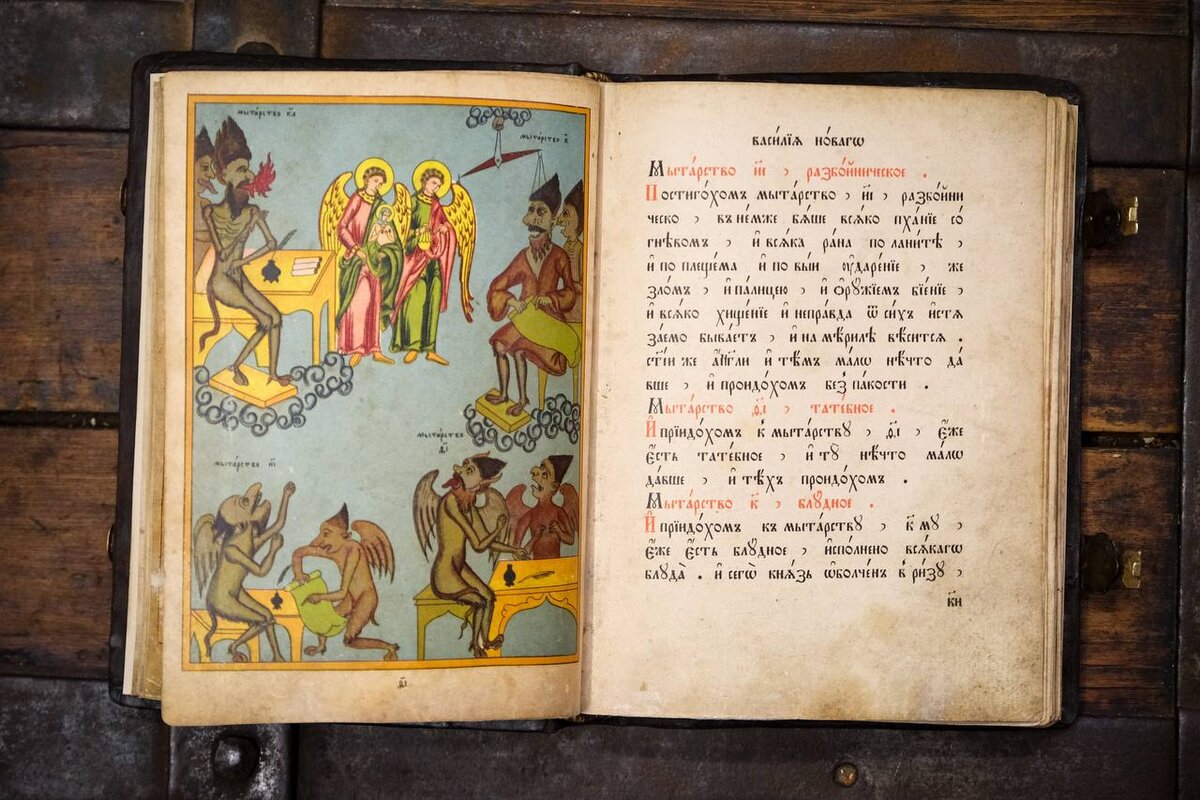 мыта́рство к҃а
мыта́рство к҃
мыта́рство и҃і
мыта́рство ѳ҃і
д҃і
васи́лїѧ но́вагѡ
Мыта́рство и҃і , разбо́йническое .
Постиго́хомъ мыта́рство , и҃і , разбо́йни
ческо , въ не́мже бѧ́ше всѧ́ко пха́нїе со́
гнѣ́вомъ , и҆ всѧ́ка ра́на по лани́тѣ ,
и҆ по плеще́ма и҆ по вы́и ᲂу҆даре́нїе , же
зло́мъ , и҆ па́лицею , и҆ ѻ҆рꙋ́жїемъ бїе́нїе ,
и҆ всѧ́ко хище́нїе и҆ непра́вда ѿ си́хъ и҆стѧ
за́емо быва́етъ , и҆ на мѣ́рилѣ вѣ́сится .
ст҃і́и же а҆́нг҃ли и҆ тѣ́мъ ма́лѡ нѣ́что да́
вше , и҆ проидо́хомъ без̾ па́кости .
Мыта́рство ѳ҃і , тате́бное .
И҆ прїидо́хомъ к̾ мыта́рствꙋ , ѳ҃і , є҆́же
є҆́сть тате́бное , и҆ тꙋ̀ нѣ́что ма́лѡ
да́вше , и҆ тѣ́хъ проидо́хомъ .
Мыта́рство к҃ , блꙋ́дное .
И҆ прїидо́хомъ къ мыта́рствꙋ , к҃ мꙋ ,
є҆́же є҆́сть блꙋ́дное , и҆спо́лнено всѧ́кагѡ
блꙋда̀ . и҆ сегѡ̀ кнѧ́зь ѡ҆болче́нъ в̾ ри́зꙋ ,
к҃и